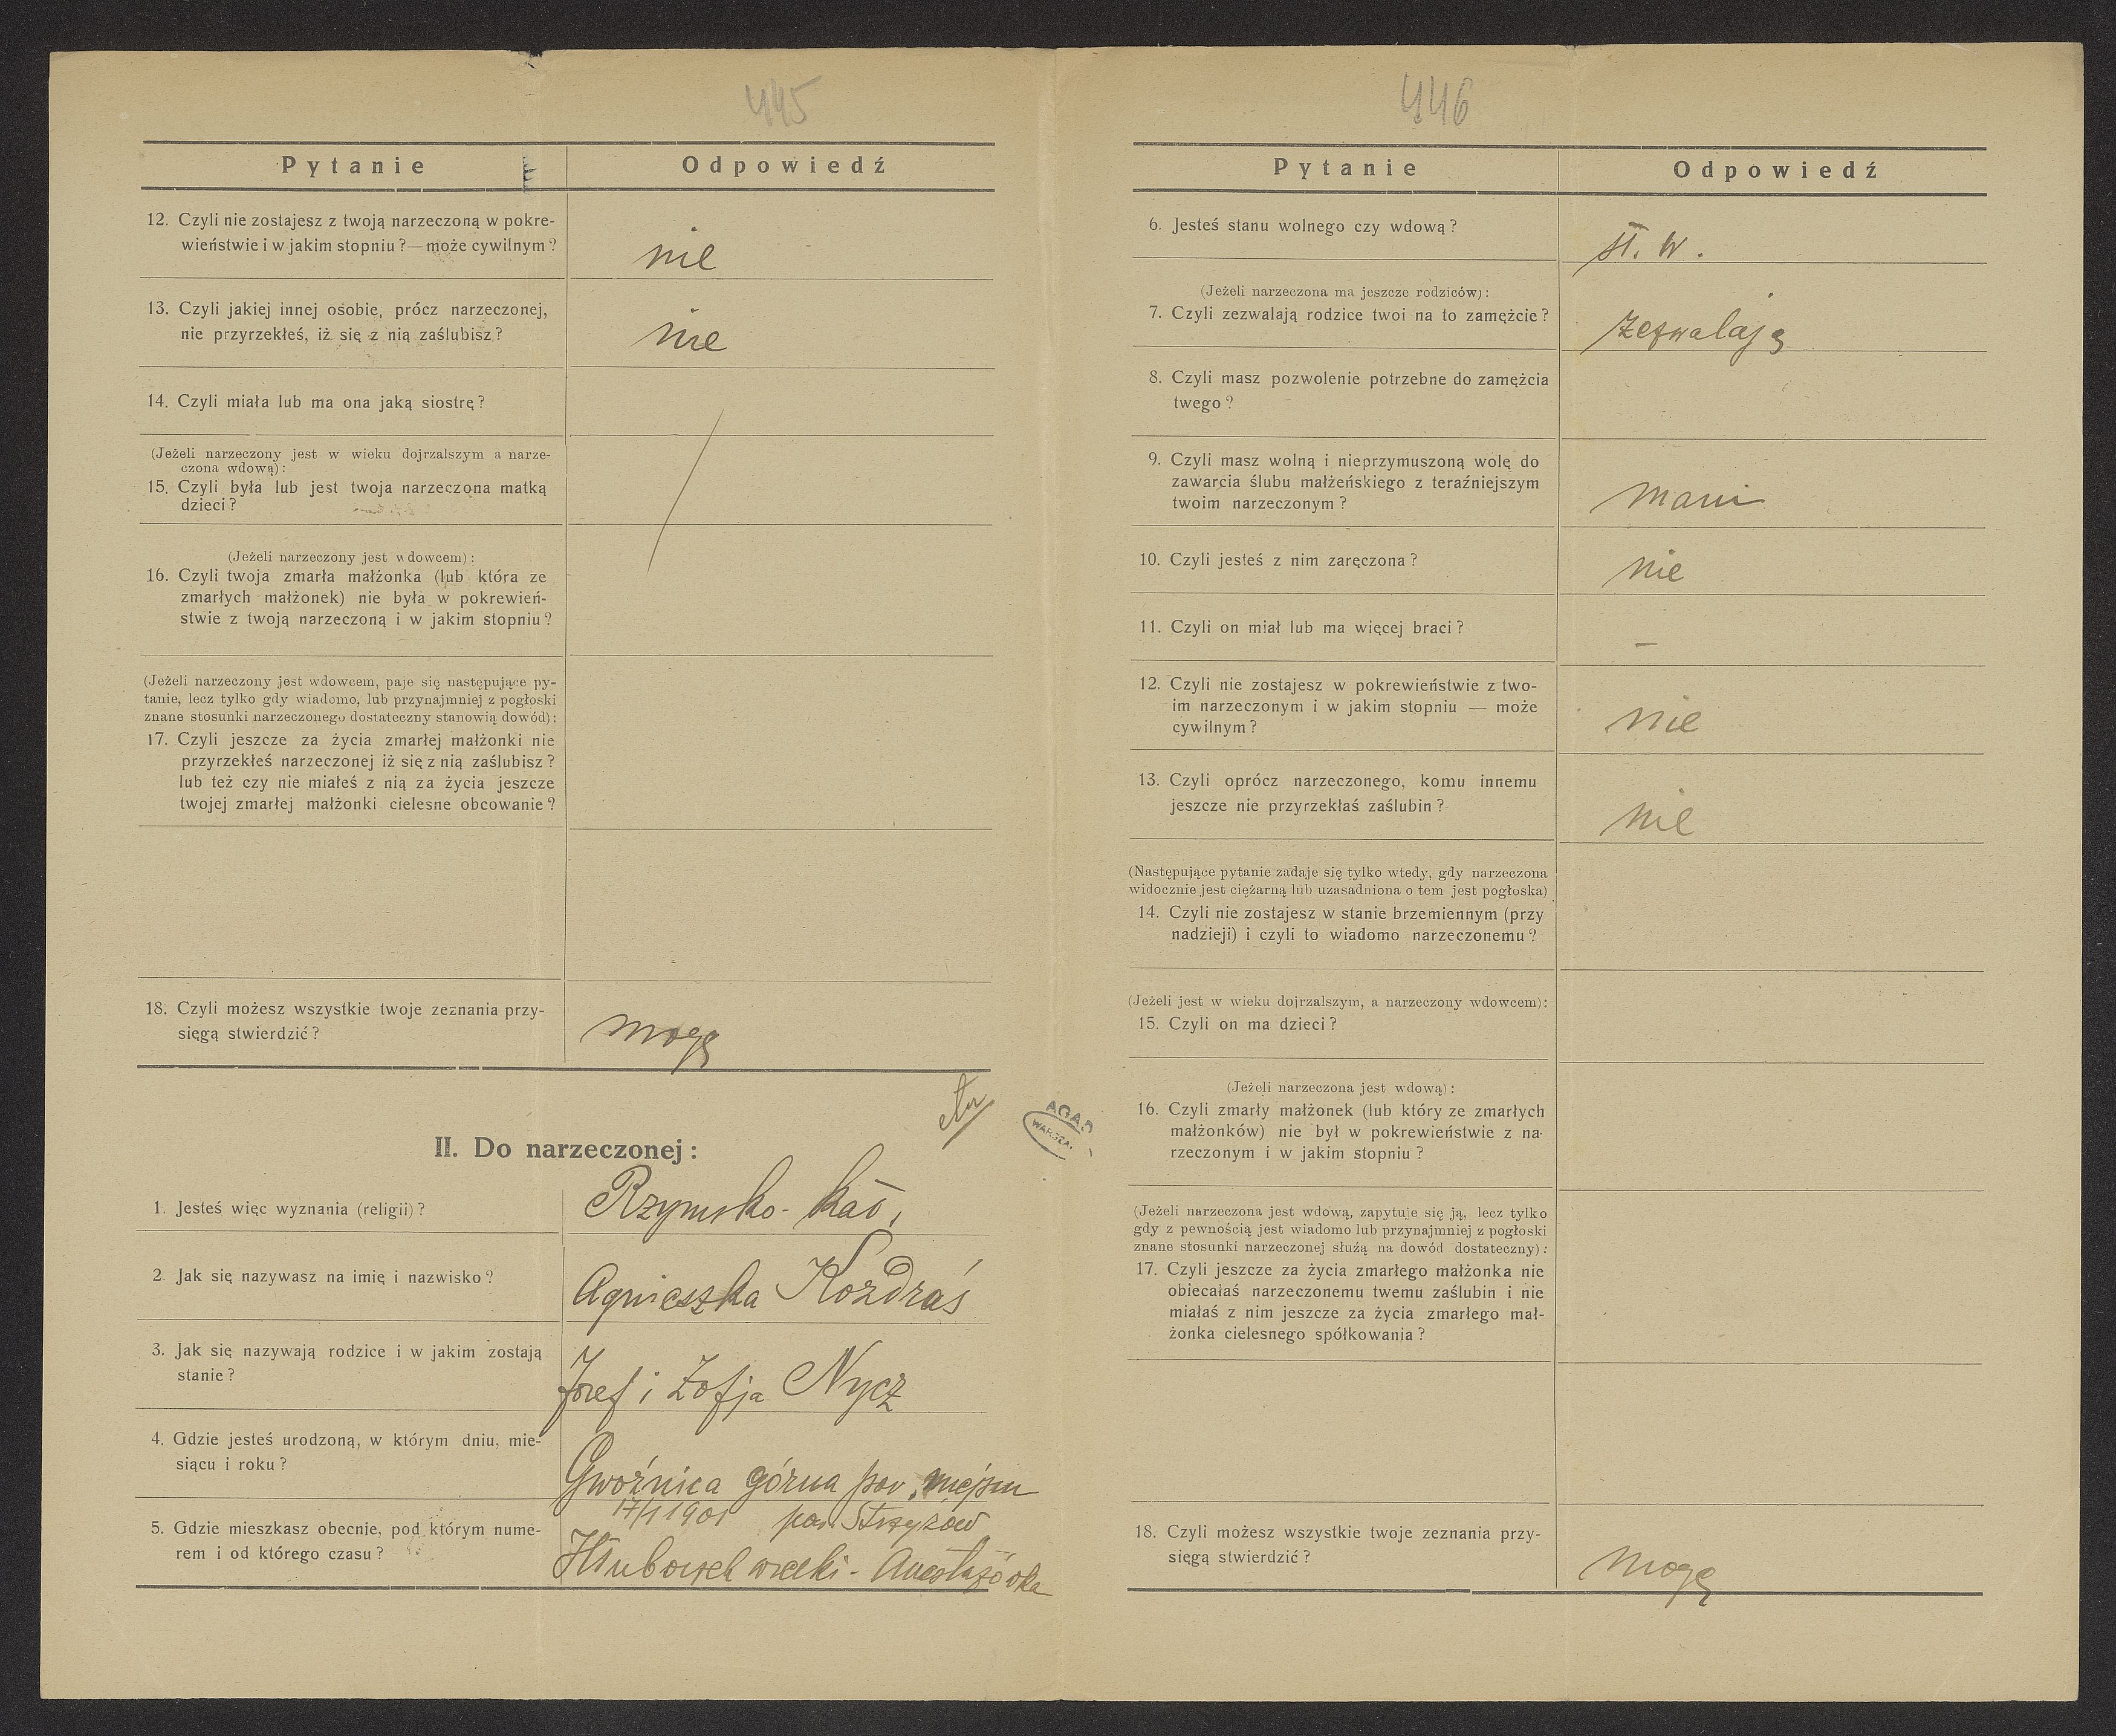 445
Pytanie Odpowiedź
12. Czyli nie zostajesz z twoją narzeczoną w pokre-
wieństwie i w jakim stopniu?—może cywilnym?
nie
13. Czyli jakiej innej osobie, prócz narzeczonej,
nie przyrzekłeś, iż się z nią zaślubisz?
nie
14. Czyli miała lub ma ona jaką siostrę?
(Jeżeli narzeczony jest w wieku dojrzalszym a narze-
czona wdową):
15. Czyli była lub jest twoja narzeczona matką
dzieci?
(Jeżeli narzeczony jest wdowcem):
16. Czyli twoja zmarła małżonka (lub która ze
zmarłych małżonek) nie była w pokrewień-
stwie z twoją narzeczoną i w jakim stopniu?
(Jeżeli narzeczony jest wdowcem, paje się następujące py-
tanie, lecz tylko gdy wiadomo, lub przynajmniej z pogłoski
znane stosunki narzeczonego dostateczny stanowią dowód):
17. Czyli jeszcze za życia zmarłej małżonki nie
przyrzekłeś narzeczonej iż się z nią zaślubisz?
lub też czy nie miałeś z nią za życia jeszcze
twojej zmarłej małżonki cielesne obcowanie?
18. Czyli możesz wszystkie twoje zeznania przy-
sięgą stwierdzić?
mogę
II. Do narzeczonej:
1. Jesteś więc wyznania (religii)?
Rzymsko-kat.
2. Jak się nazywasz na imię i nazwisko?
Agnieszka Kozdraś
3. Jak się nazywają rodzice i w jakim zostają
stanie?
Józef i Zofja Nycz
4. Gdzie jesteś urodzoną, w którym dniu, mie-
siącu i roku?
Gwoźnica górna par. miejsu
17/1 1901 pow. Strzyżów
5. Gdzie mieszkasz obecnie, pod którym nume-
rem i od którego czasu?
Hłuboczek wielki - Anastazówka
AGAD
WARSZA
446
Pytanie Odpowiedź
6. Jesteś stanu wolnego czy wdową?
st. w.
(Jeżeli narzeczona ma jeszcze rodziców):
7. Czyli zezwalają rodzice twoi na to zamężcie?
zezwalają
8. Czyli masz pozwolenie potrzebne do zamężcia
twego?
9. Czyli masz wolną i nieprzymuszoną wolę do
zawarcia ślubu małżeńskiego z teraźniejszym
twoim narzeczonym?
mam
10. Czyli jesteś z nim zaręczona?
nie
11. Czyli on miał lub ma więcej braci?
–
12. Czyli nie zostajesz w pokrewieństwie z two-
im narzeczonym i w jakim stopniu — może
cywilnym?
nie
13. Czyli oprócz narzeczonego, komu innemu
jeszcze nie przyrzekłaś zaślubin?
nie
(Następujące pytanie zadaje się tylko wtedy, gdy narzeczona
widocznie jest ciężarną lub uzasadniona o tem jest pogłoska)
14. Czyli nie zostajesz w stanie brzemiennym (przy
nadzieji) i czyli to wiadomo narzeczonemu?
(Jeżeli jest w wieku dojrzalszym, a narzeczony wdowcem):
15. Czyli on ma dzieci?
(Jeżeli narzeczona jest wdową):
16. Czyli zmarły małżonek (lub który ze zmarłych
małżonków) nie był w pokrewieństwie z na-
rzeczonym i w jakim stopniu?
(Jeżeli narzeczona jest wdową, zapytuje się ją, lecz tylko
gdy z pewnością jest wiadomo lub przynajmniej z pogłoski
znane stosunki narzeczonej służą na dowód dostateczny):
17. Czyli jeszcze za życia zmarłego małżonka nie
obiecałaś narzeczonemu twemu zaślubin i nie
miałaś z nim jeszcze za życia zmarłego mał-
żonka cielesnego spółkowania?
18. Czyli możesz wszystkie twoje zeznania przy-
sięgą stwierdzić?
mogę